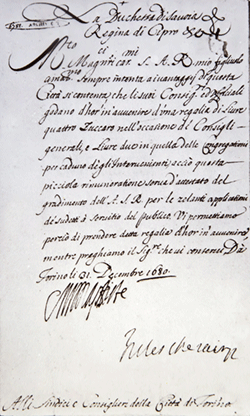 La Duchessa di Savoia
Regina di Cipro &c
Mto Magnifici mi S. A. R. mio figliuolo
sempre intento a i vantaggi di questa
Città si contenta, che li suoi Consiglieri
godano d'hor in avvenire d'una regalia di Livre
quattro Zuccaro nell'occasione de Consigli
generali, e Livre due in quella delle congregationi
per caduno degli Intervenienti, acciò questa
picciola rimuneratione serva d'attestato del
gradimento dell'A. S. R. per le zelanti applicationi
de sudetti à servitio del publico. Vi permettiamo
perciò di prendere detta regalia d'hor in avvenire
mentre preghiamo il Sigre che vi conservi. Da
Torino li 31. Decembre 1680.
Alli Sindici e Consiglieri della Città di Torino